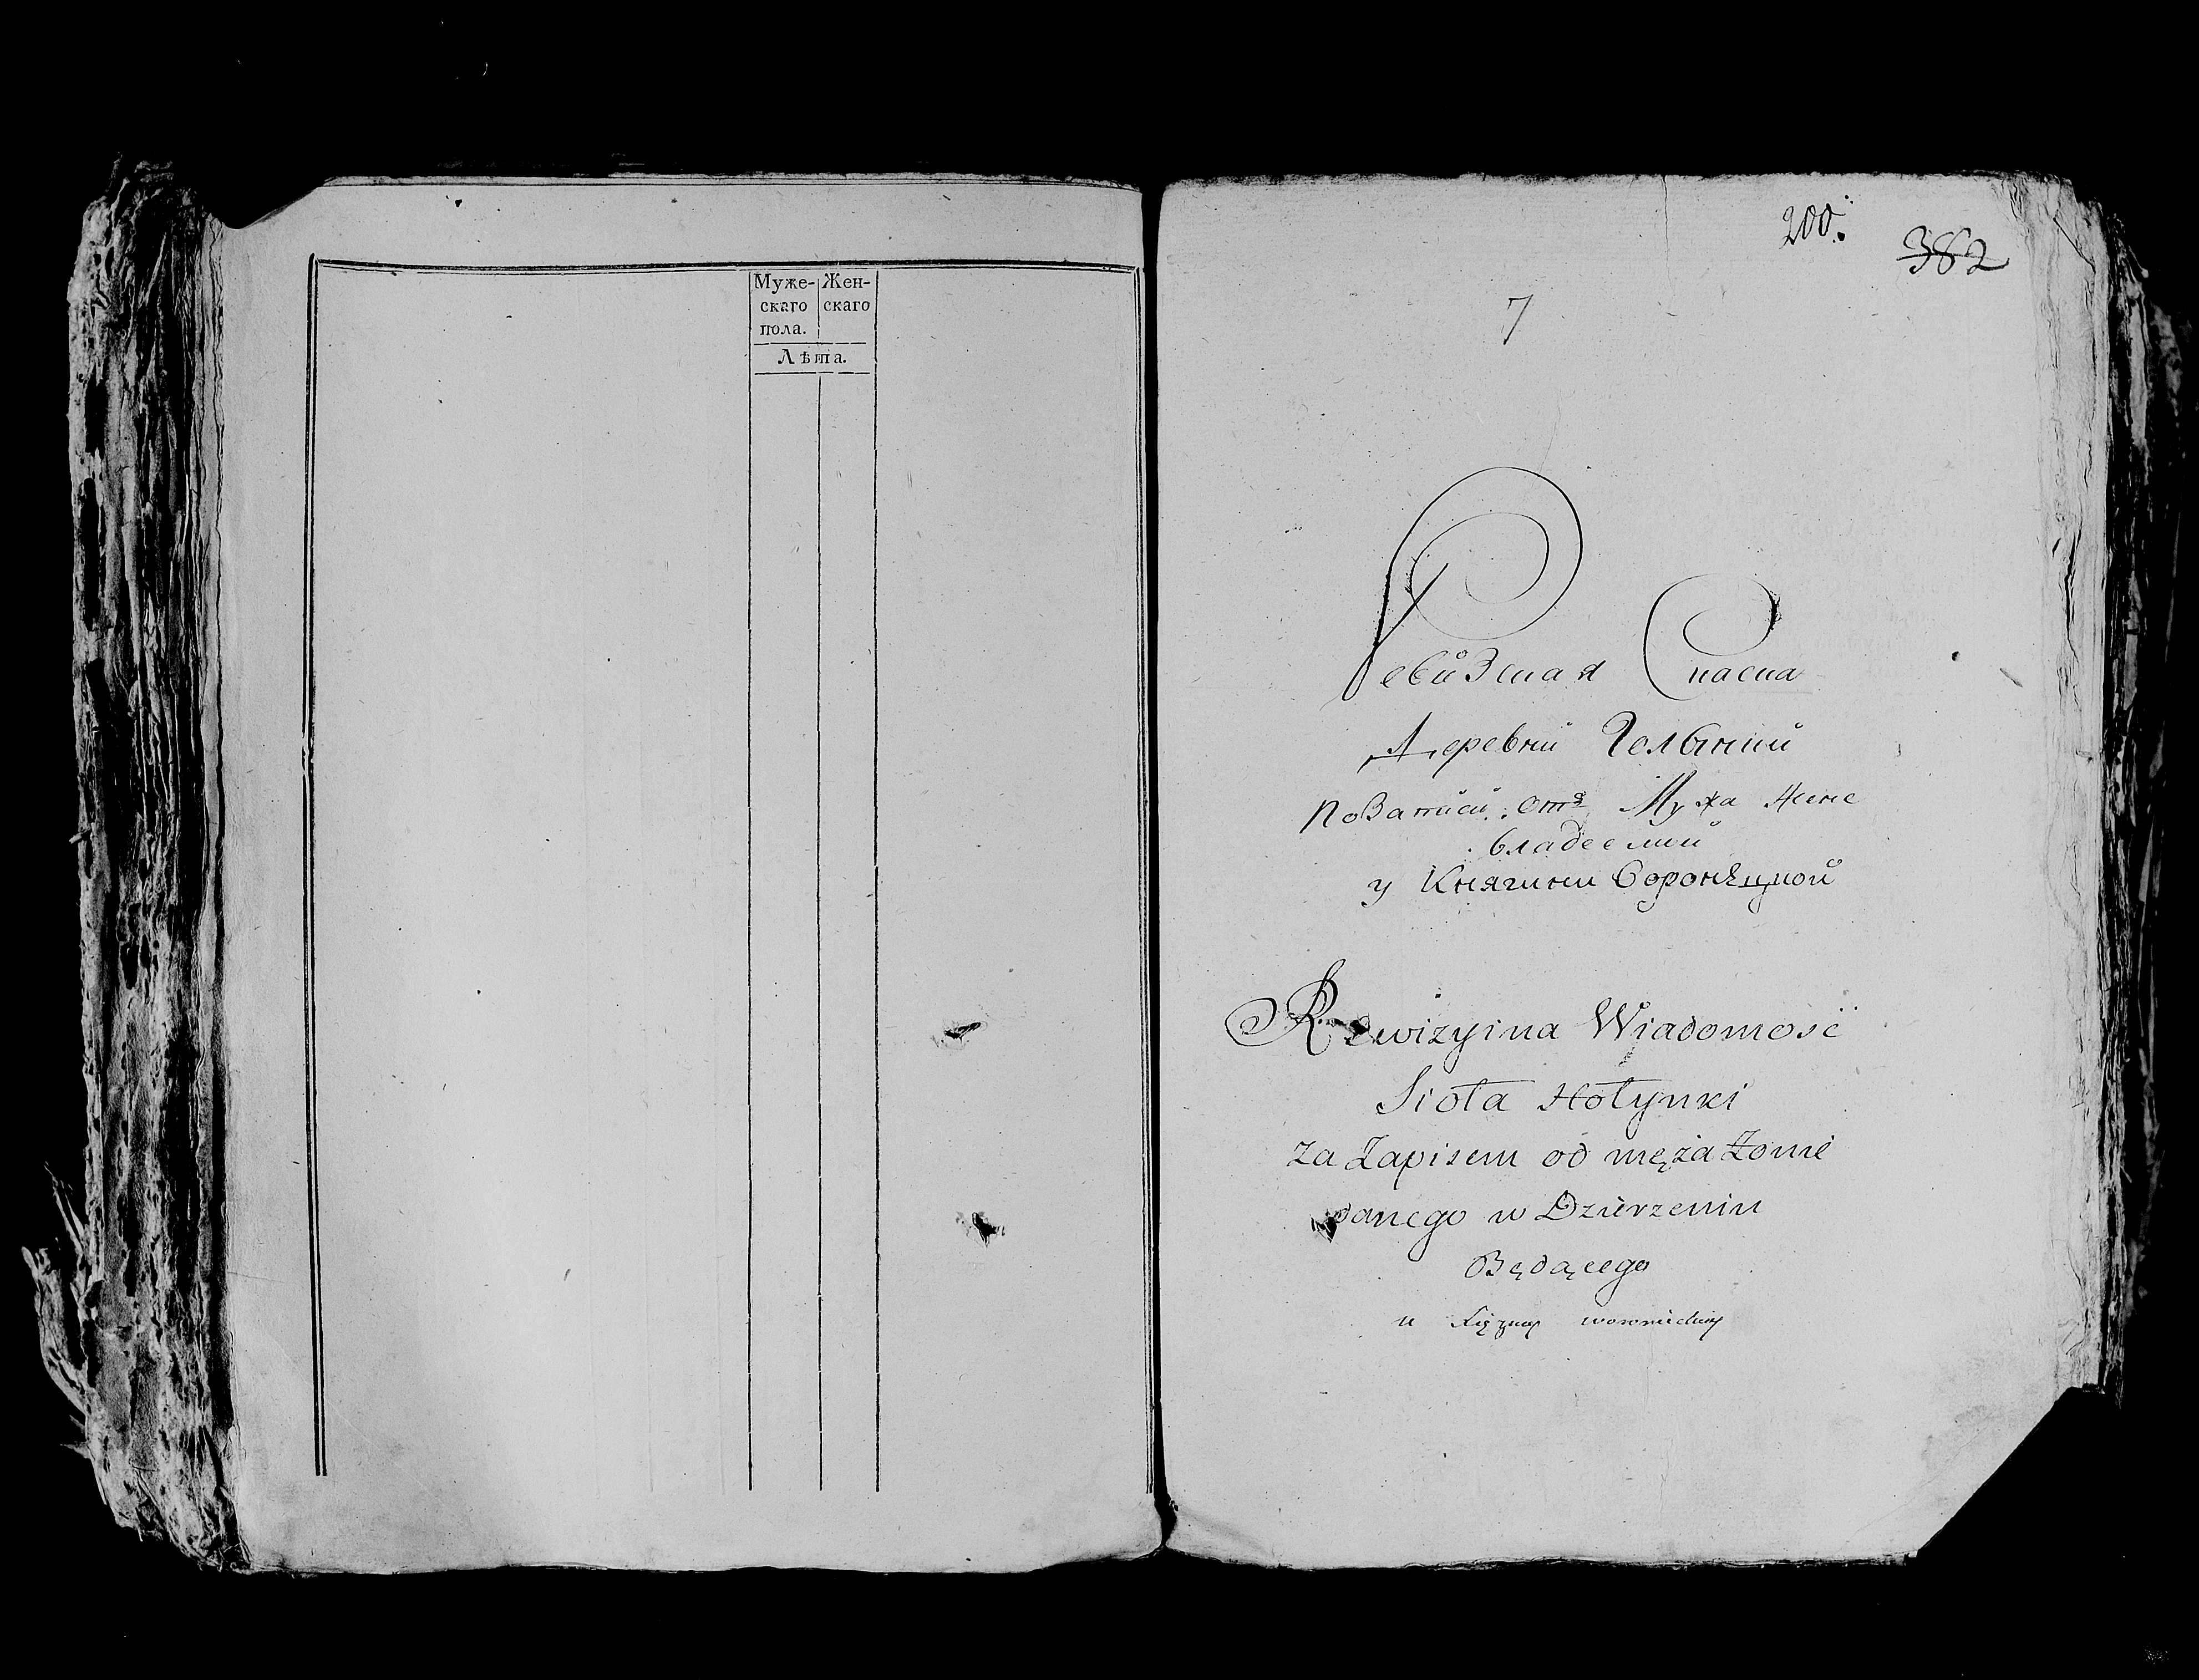 Муже- Жен-
скаго скаго
пола.
Лѣта.
200.
382
7
Ревизская Скаска
Деревни Голынки
По Записи отъ Мужа Жене
владеемий
у Княгини Воронѣцкой
Rewizyina Wiadomość
Sioła Hołynki
za Zapisem od męża Żonie
danego w Dzierżeniu
Będącego
u Xiężny woronieckiey